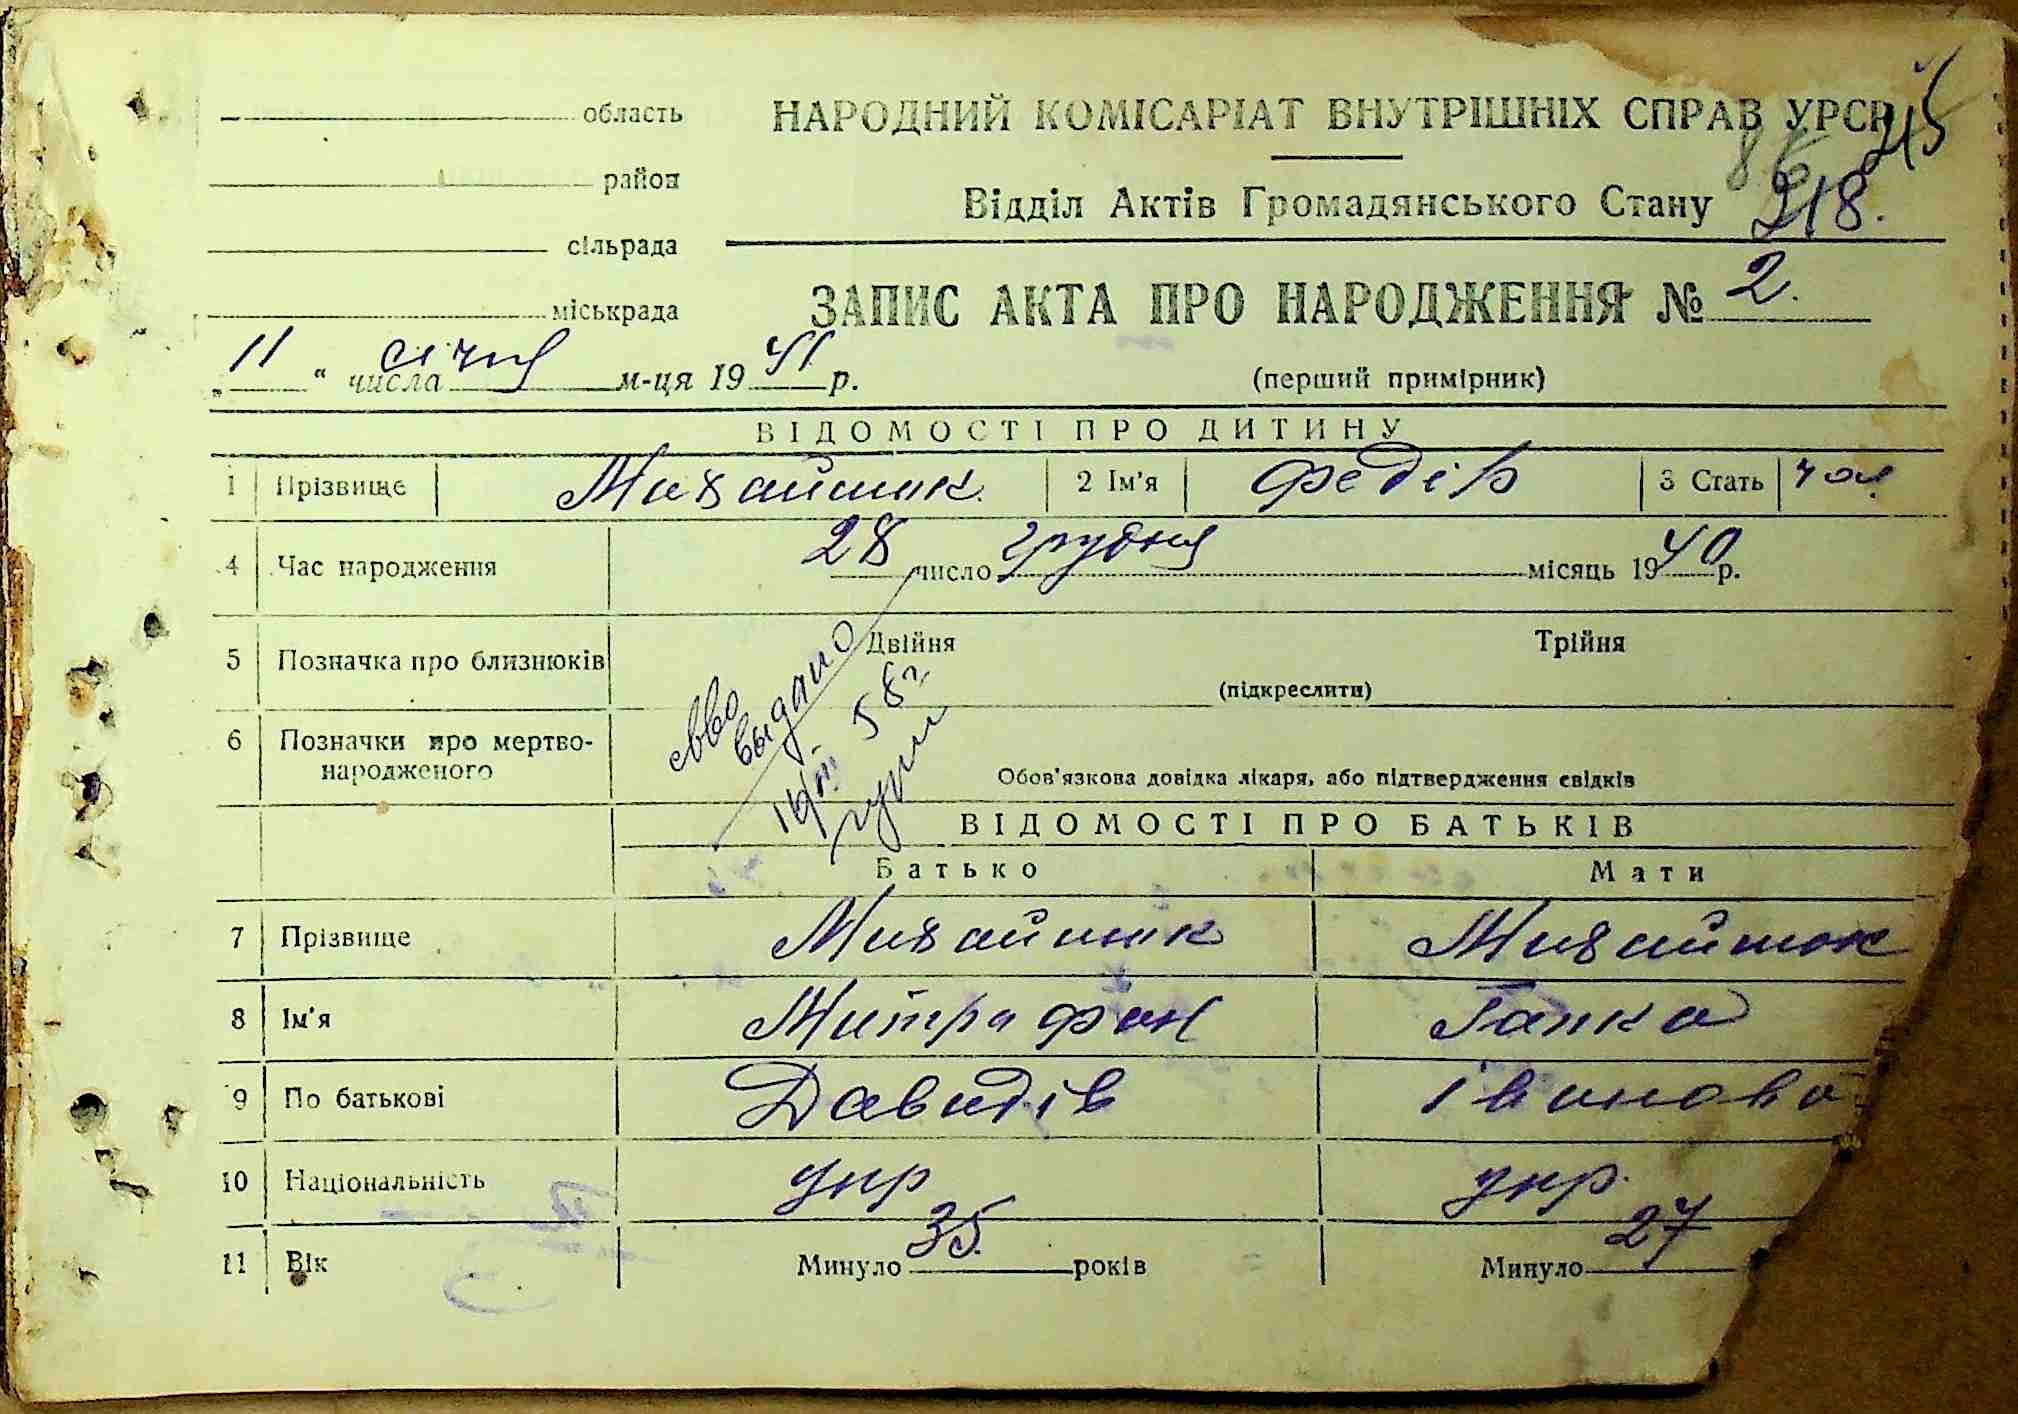 область
район
сільрада
міськрада
НАРОДНИЙ КОМІСАРІАТ ВНУТРІШНІХ СПРАВ УРСР
215
86
Відділ Актів Громадянського Стану 218.
ЗАПИС АКТА ПРО НАРОДЖЕННЯ № 2.
„11“ числа січня м-ця 1941 р.
(перший примірник)
ВІДОМОСТІ ПРО ДИТИНУ
1 Прізвище Михайлик 2 Ім'я Федір 3 Стать чол.
4 Час народження 28 число грудня місяць 1940 р.
5 Позначка про близнюків Двійня Трійня
(підкреслити)
6 Позначки про мертво-
народженого
Обов'язкова довідка лікаря, або підтвердження свідків
выдано
58г
ВІДОМОСТІ ПРО БАТЬКІВ
Батько Мати
7 Прізвище Михайлик Михайлик
8 Ім'я Митрафан Гапка
9 По батькові Давидів Іванова
10 Національність укр укр.
11 Вік Минуло 35 років Минуло 27